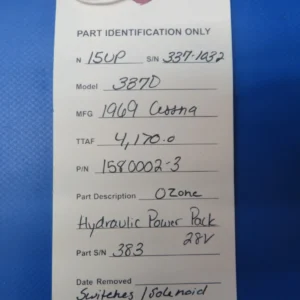 PART IDENTIFICATION ONLY
N 15UP S/N 337-1032
Model 337D
MFG 1969 Cessna
TTAF 4,170.0
P/N 1580002-3
Part Description Ozone
Hydraulic Power Pack
28V
Part S/N 383
Date Removed
Switches / Solenoid